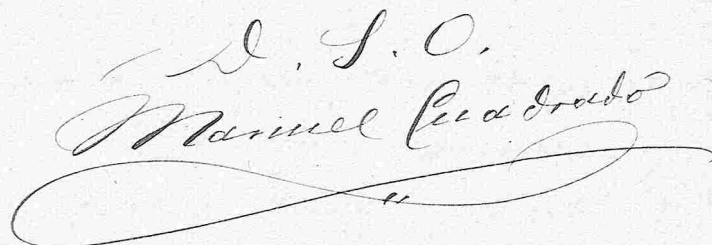 D. S. O.
Manuel Cuadrado